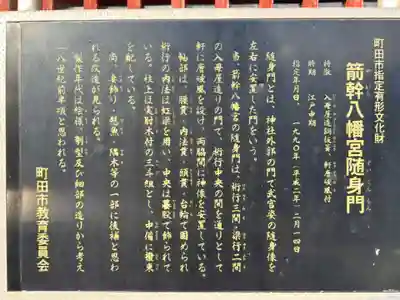 町田市指定有形文化財
箭幹八幡宮随身門
特徴 入母屋造銅板葺、軒唐破風付
時期 江戸中期
指定年月日、一九九〇年(平成二年)二月一四日
随身門とは、神社外郭の門で武官姿の随身像を
左右に安置した門をいう。
当、箭幹八幡宮の随身門は、桁行三間、梁行二間
の入母屋造りの門で、桁行中央の間を通りとして
軒に唐破風を設け、両脇間に神像を安置している。
軸部は、腰貫、内法貫、頭貫、台輪で固められ
桁行の内法は虹梁を用い、中央は蟇股で飾られて
いる。柱上は実肘木付の三斗組とし、中備に撥束
を配している。
尚、妻飾り、懸魚、隅木等の一部に後補と思わ
れる改造が見られる。
製作年代は絵様、刳型及び細部の造りから考え
一八世紀前半頃と思われる。
町田市教育委員会